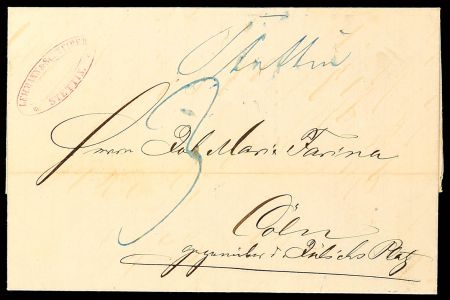 Stettin
LEHMANN & SCHREIBER
STETTIN
3
Herrn Joh. Maria Farina
Cöln
gegenüber d. Jülichs Platz